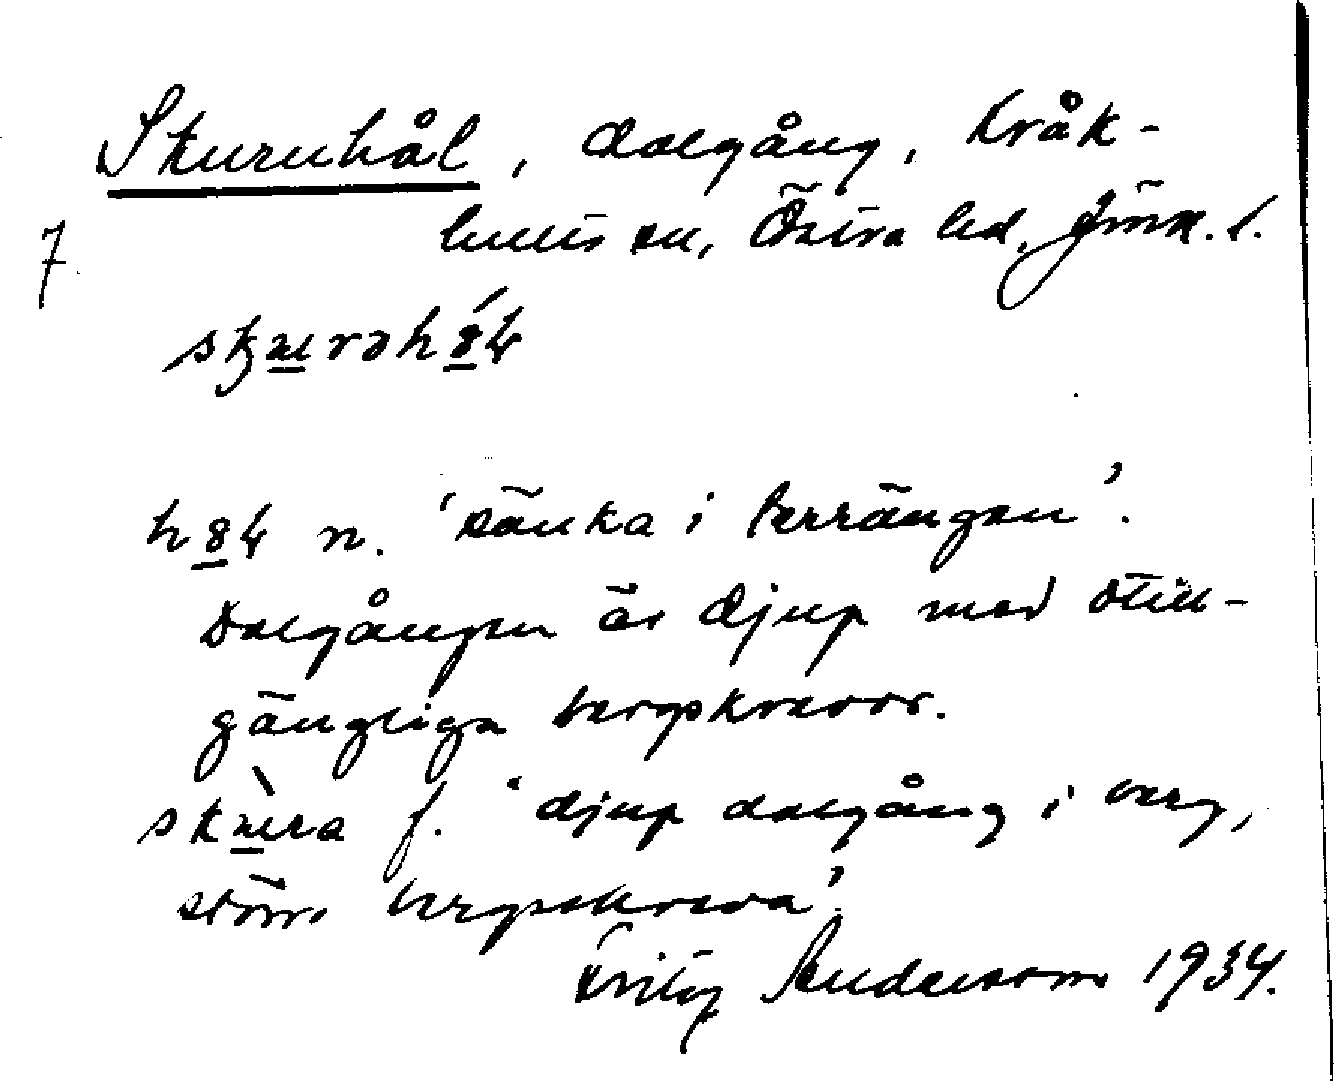 Skuruhål, dalgång, Kråk-
hults sn, Östra hd, Jönk. l.
7
h8ł n. 'sänka i terrängen'.
Dalgången är djup med otill-
gängliga bergskrevor.
f. 'djup dalgång i berg,
större bergsskreva'.
Fritz Andersson 1934.